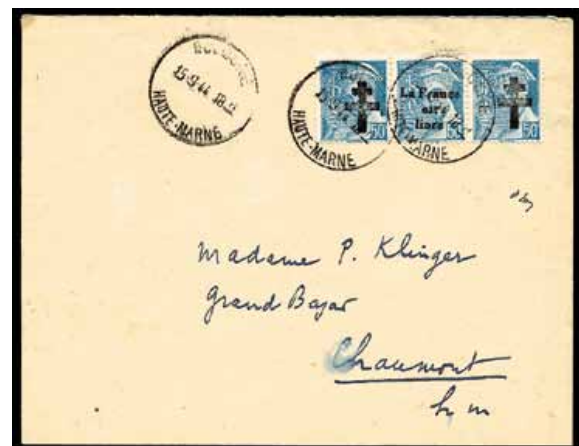 BOLOGNE
15-9 44 18
HAUTE-MARNE
HAUTE-MARNE
50
La France
MARNE
50
Madame P. Klinger
Grand Bazar
Chaumont
h m